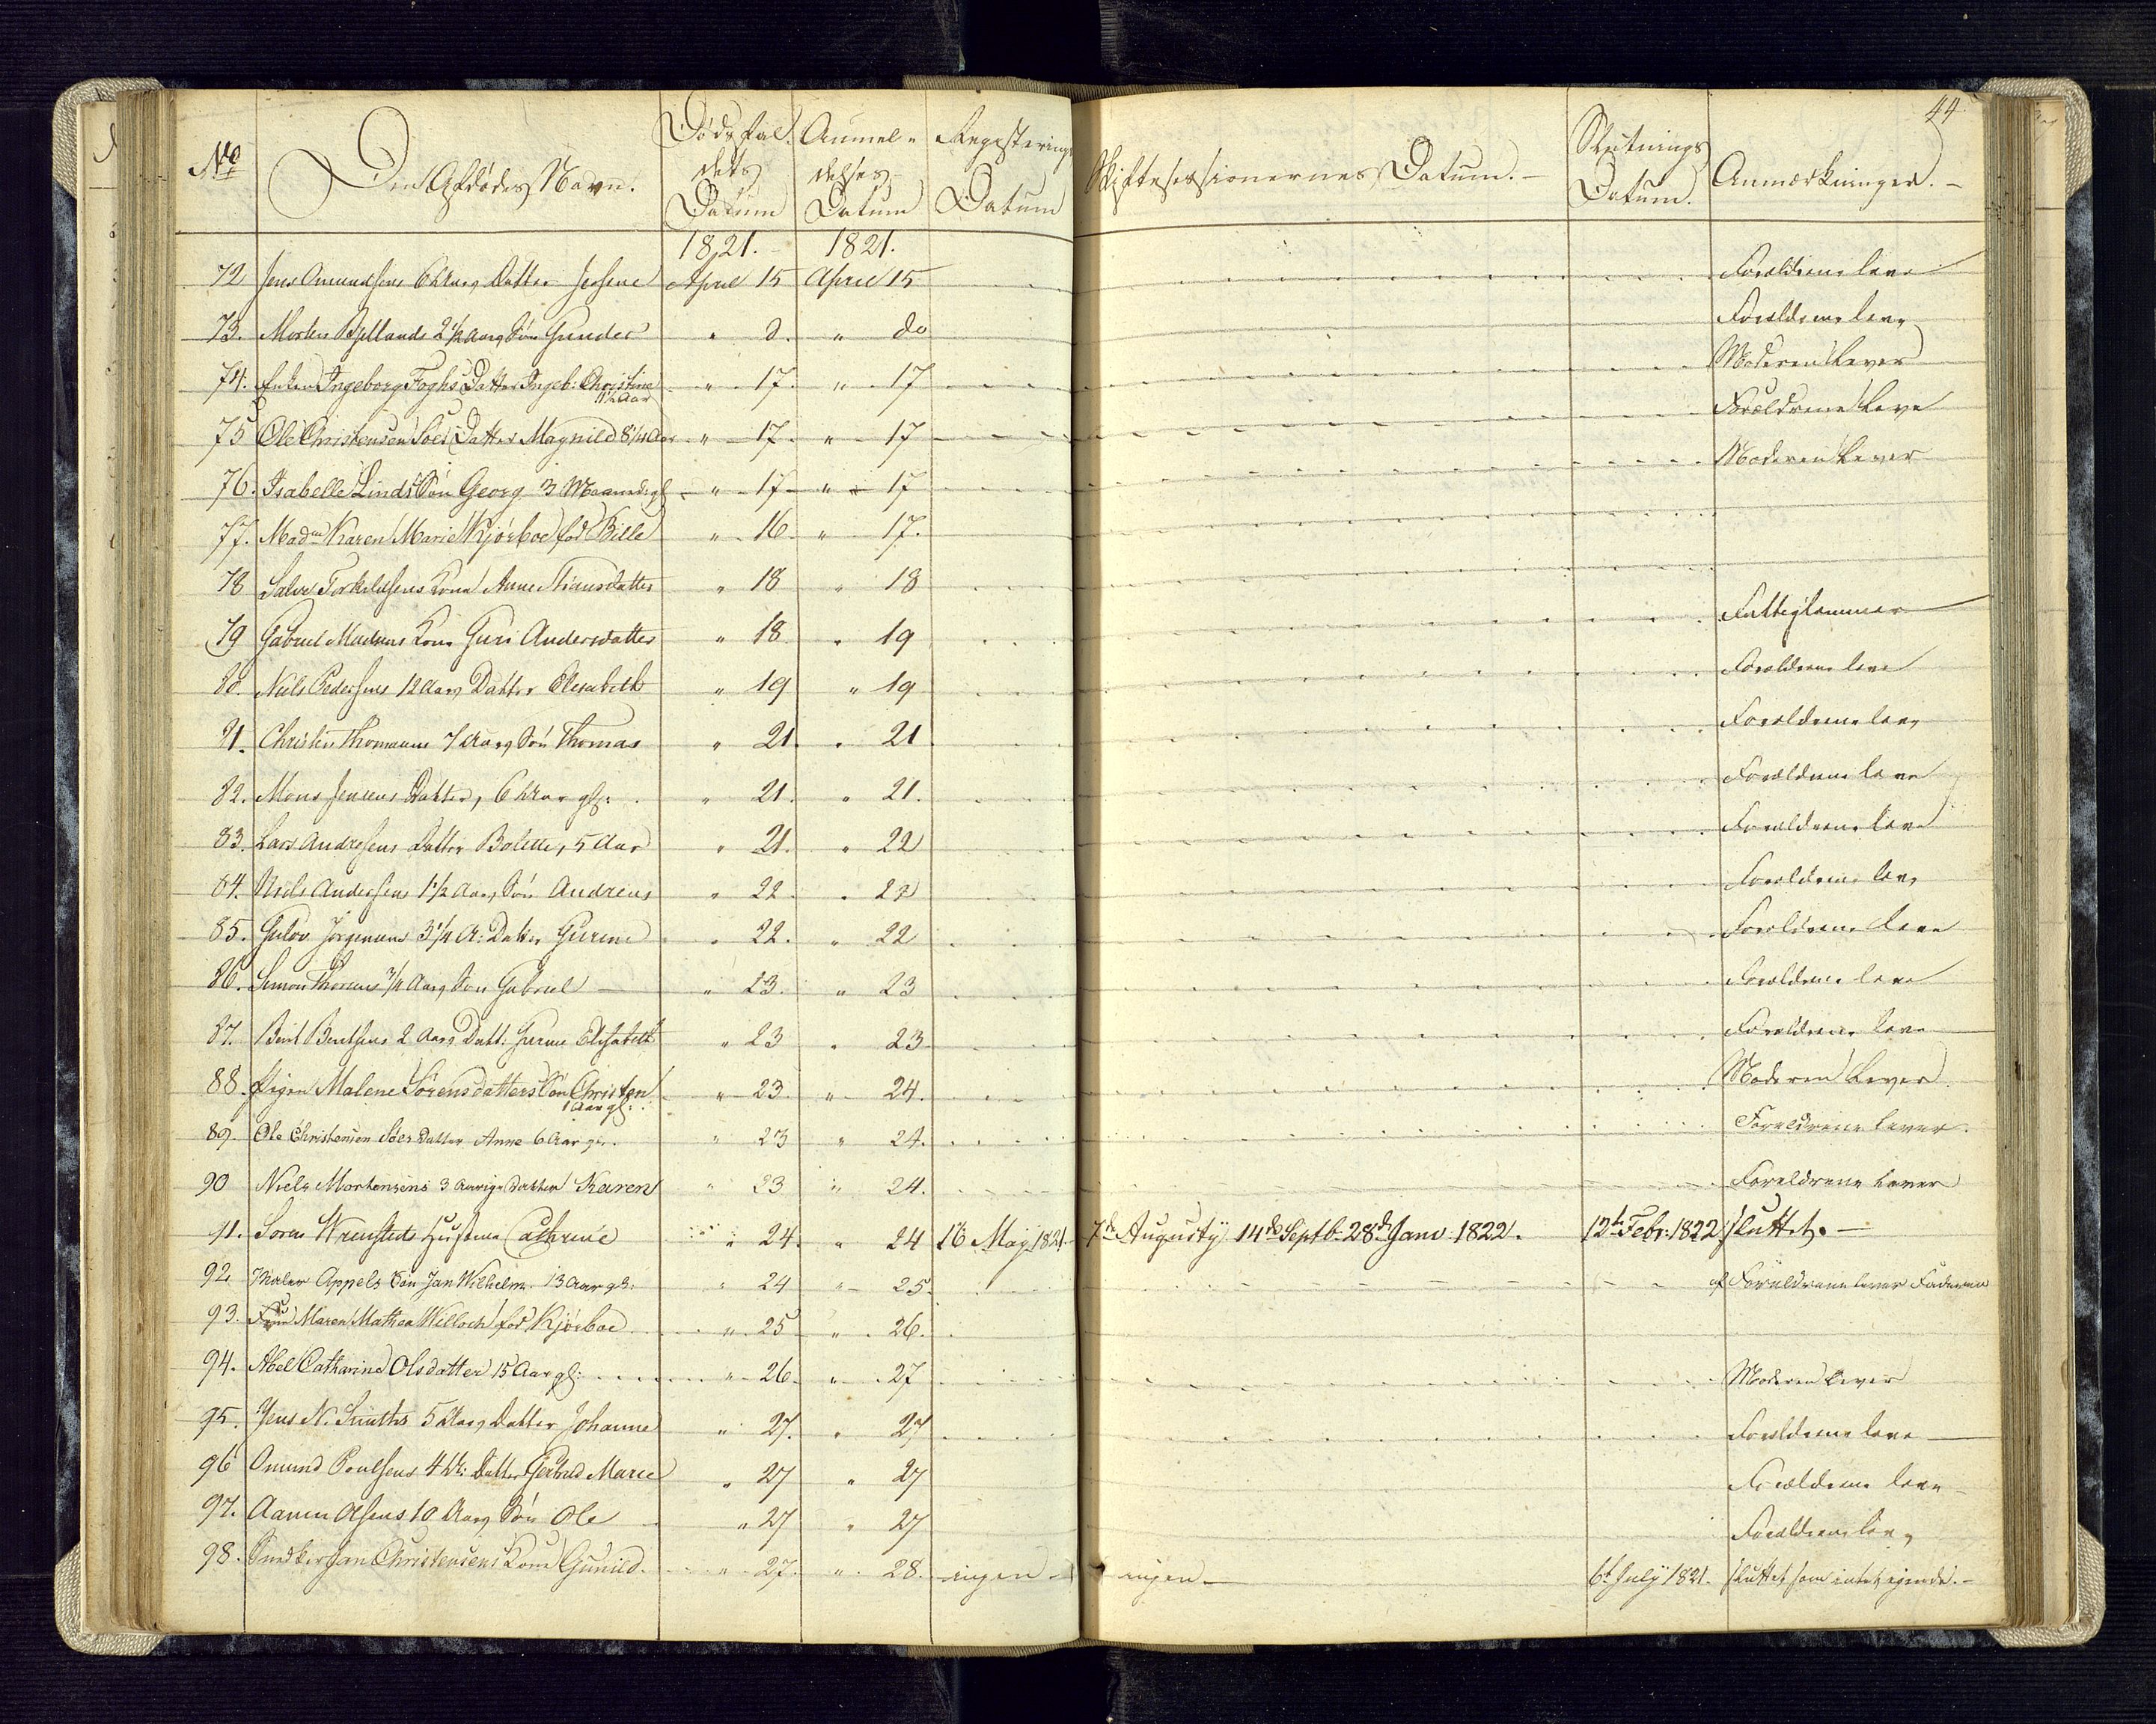 44
No Den Afdødes Navn. Dødsfaldets Datum Anmeldelses Datum Registerings Datum Skiftesessionernes Datum. Slutnings Datum. Anmærkninger.
1821. 1821.
72 Jens Omundsens 6 Aarg Datter April 15 April 15 Forældrene leve
73. Morten Bjellands 2 1/2 Aarg Søn Gunder " d. " do Forældrene leve
74. Enken Ingeborg Foghs Datter Ingeb: Christine 1 1/2 Aar " 17. " 17 Moderen lever
75 Ole Christensen Soes Datter Magnild 8 1/4 Aar " 17. " 17 Forældrene leve
76. Isabelle Linds Søn Georg 3 Maaneder gl " 17 " 17 Moderen lever
77. Madm Karen Marie Kjørboe fød Bille " 16 " 17.
78 Salve Torkildsens Kone Anne Hansdatter " 18 " 18
79 Gabriel Madsens Kone Guri Andersdatter " 18 " 19 Fattiglemmer
80. Niels Pedersens 12 Aarg Datter Elisabeth " 19 " 19 Forældrene leve
81. Christen Thomasens 7 Aarg Søn Thomas " 21 " 21 Forældrene leve
82. Mons Jensens Datter, 6 Aar gl: " 21. " 21. Forældrene leve
83. Lars Andersens Datter Bolette, 5 Aar " 21. " 22 Forældrene leve
84. Niels Andersens 1 1/2 Aarg Søn Andreas " 22. " 22 Forældrene leve
85. Gulov Jørgensens 3 1/4 A: Datter Gurine " 22. " 22 Forældrene leve
86. Simon 3/4 Aarg Søn Gabriel " 23. " 23 Forældrene leve
87. Bent Bentsens 2 Aarg Datt: Gurine Elisabeth " 23 " 23 Forældrene leve
88. Pigen Malene Sørensdatters Søn Christen 1 Aar gl: " 23. " 24. Moderen lever
89. Ole Christensen Soes Datter Anne 6 Aar gl. " 23 " 24. Foreldrene lever.
90 Niels Mortensens 3 Aarige Datter Karen " 23 " 24. Foreldrene lever
91. Soren Wrensteds Hustrue Cathrine " 24. " 24 16 May 1821. 7de Augusty 14de Septb. 28de Janv 1822. 12te Febr. 1822 sluttet.
92 Maler Appels Søn Jan Wilhelm 13 Aar gl: " 24 " 25. af Foreldrene lever Faderen
93. Frue Maren Mathea Willoch fød Kjørboe " 25 " 26.
94. Abel Catharine Olsdatter 15 Aar gl: " 26. " 27 Moderen lever
95. Jens N. Smiths 5 Aarg Datter Johanne " 27. " 27 Forældrene leve
96 Omund Poulsens 4 Datter Gertrud Marie " 27 " 27 Forældrene leve
97. Aanen Olsens 10 Aarg Søn Ole " 27 " 27 Forældrene leve
98. Snedker Jan Christensens Kone Gunild. " 27. " 28. ingen ingen 6te July 1821. sluttet som intet ejende.